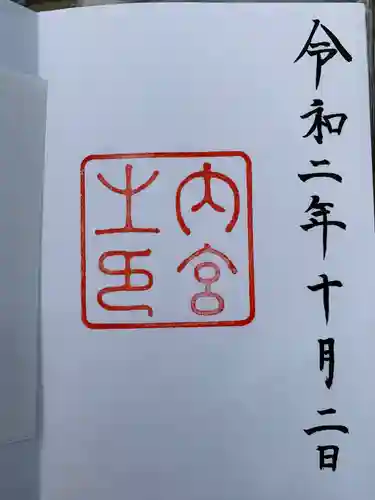 令和二年十月二日
内宮
之印